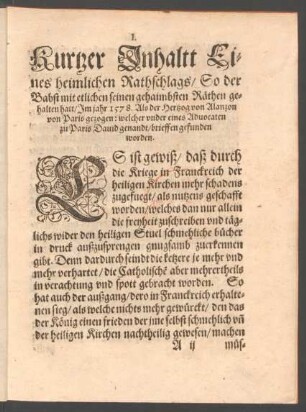 1.
Kurtzer Inhaltt Ei-
nes heimlichen Rathschlags/ So der
Babst mit etlichen seinen gehaimbsten Räthen ge-
halten hatt/ Im jahr 1578. Als der Hertzog von Alanzon
von Paris gezogen: welcher vnder eines Aduocaten
zu Paris Dauid genandt/ brieffen gefunden
worden.
ES ist gewiß/ daß durch
die Kriege in Franckreich der
heiligen Kirchen mehr schadens
zugefuegt/ als nutzens geschafft
worden/ welches dan nur allein
die freyheit zuschreiben vnd täg-
lichs wider den heiligen Stuel schmehliche bücher
in druck außzusprengen gnugsamb zuerkennen
gibt. Denn dardurch seindt die ketzere je mehr vnd
mehr verhartet/ die Catholische aber mehrertheils
in verachtung vnd spott gebracht worden. So
hat auch der außgang/ dero in Franckreich erhalte-
nen sieg/ als welche nichts mehr gewürckt/ den das
der König einen frieden der jme selbst schmehlich vñ
der heiligen Kirchen nachtheilig gewesen/ machen
A ij müs-